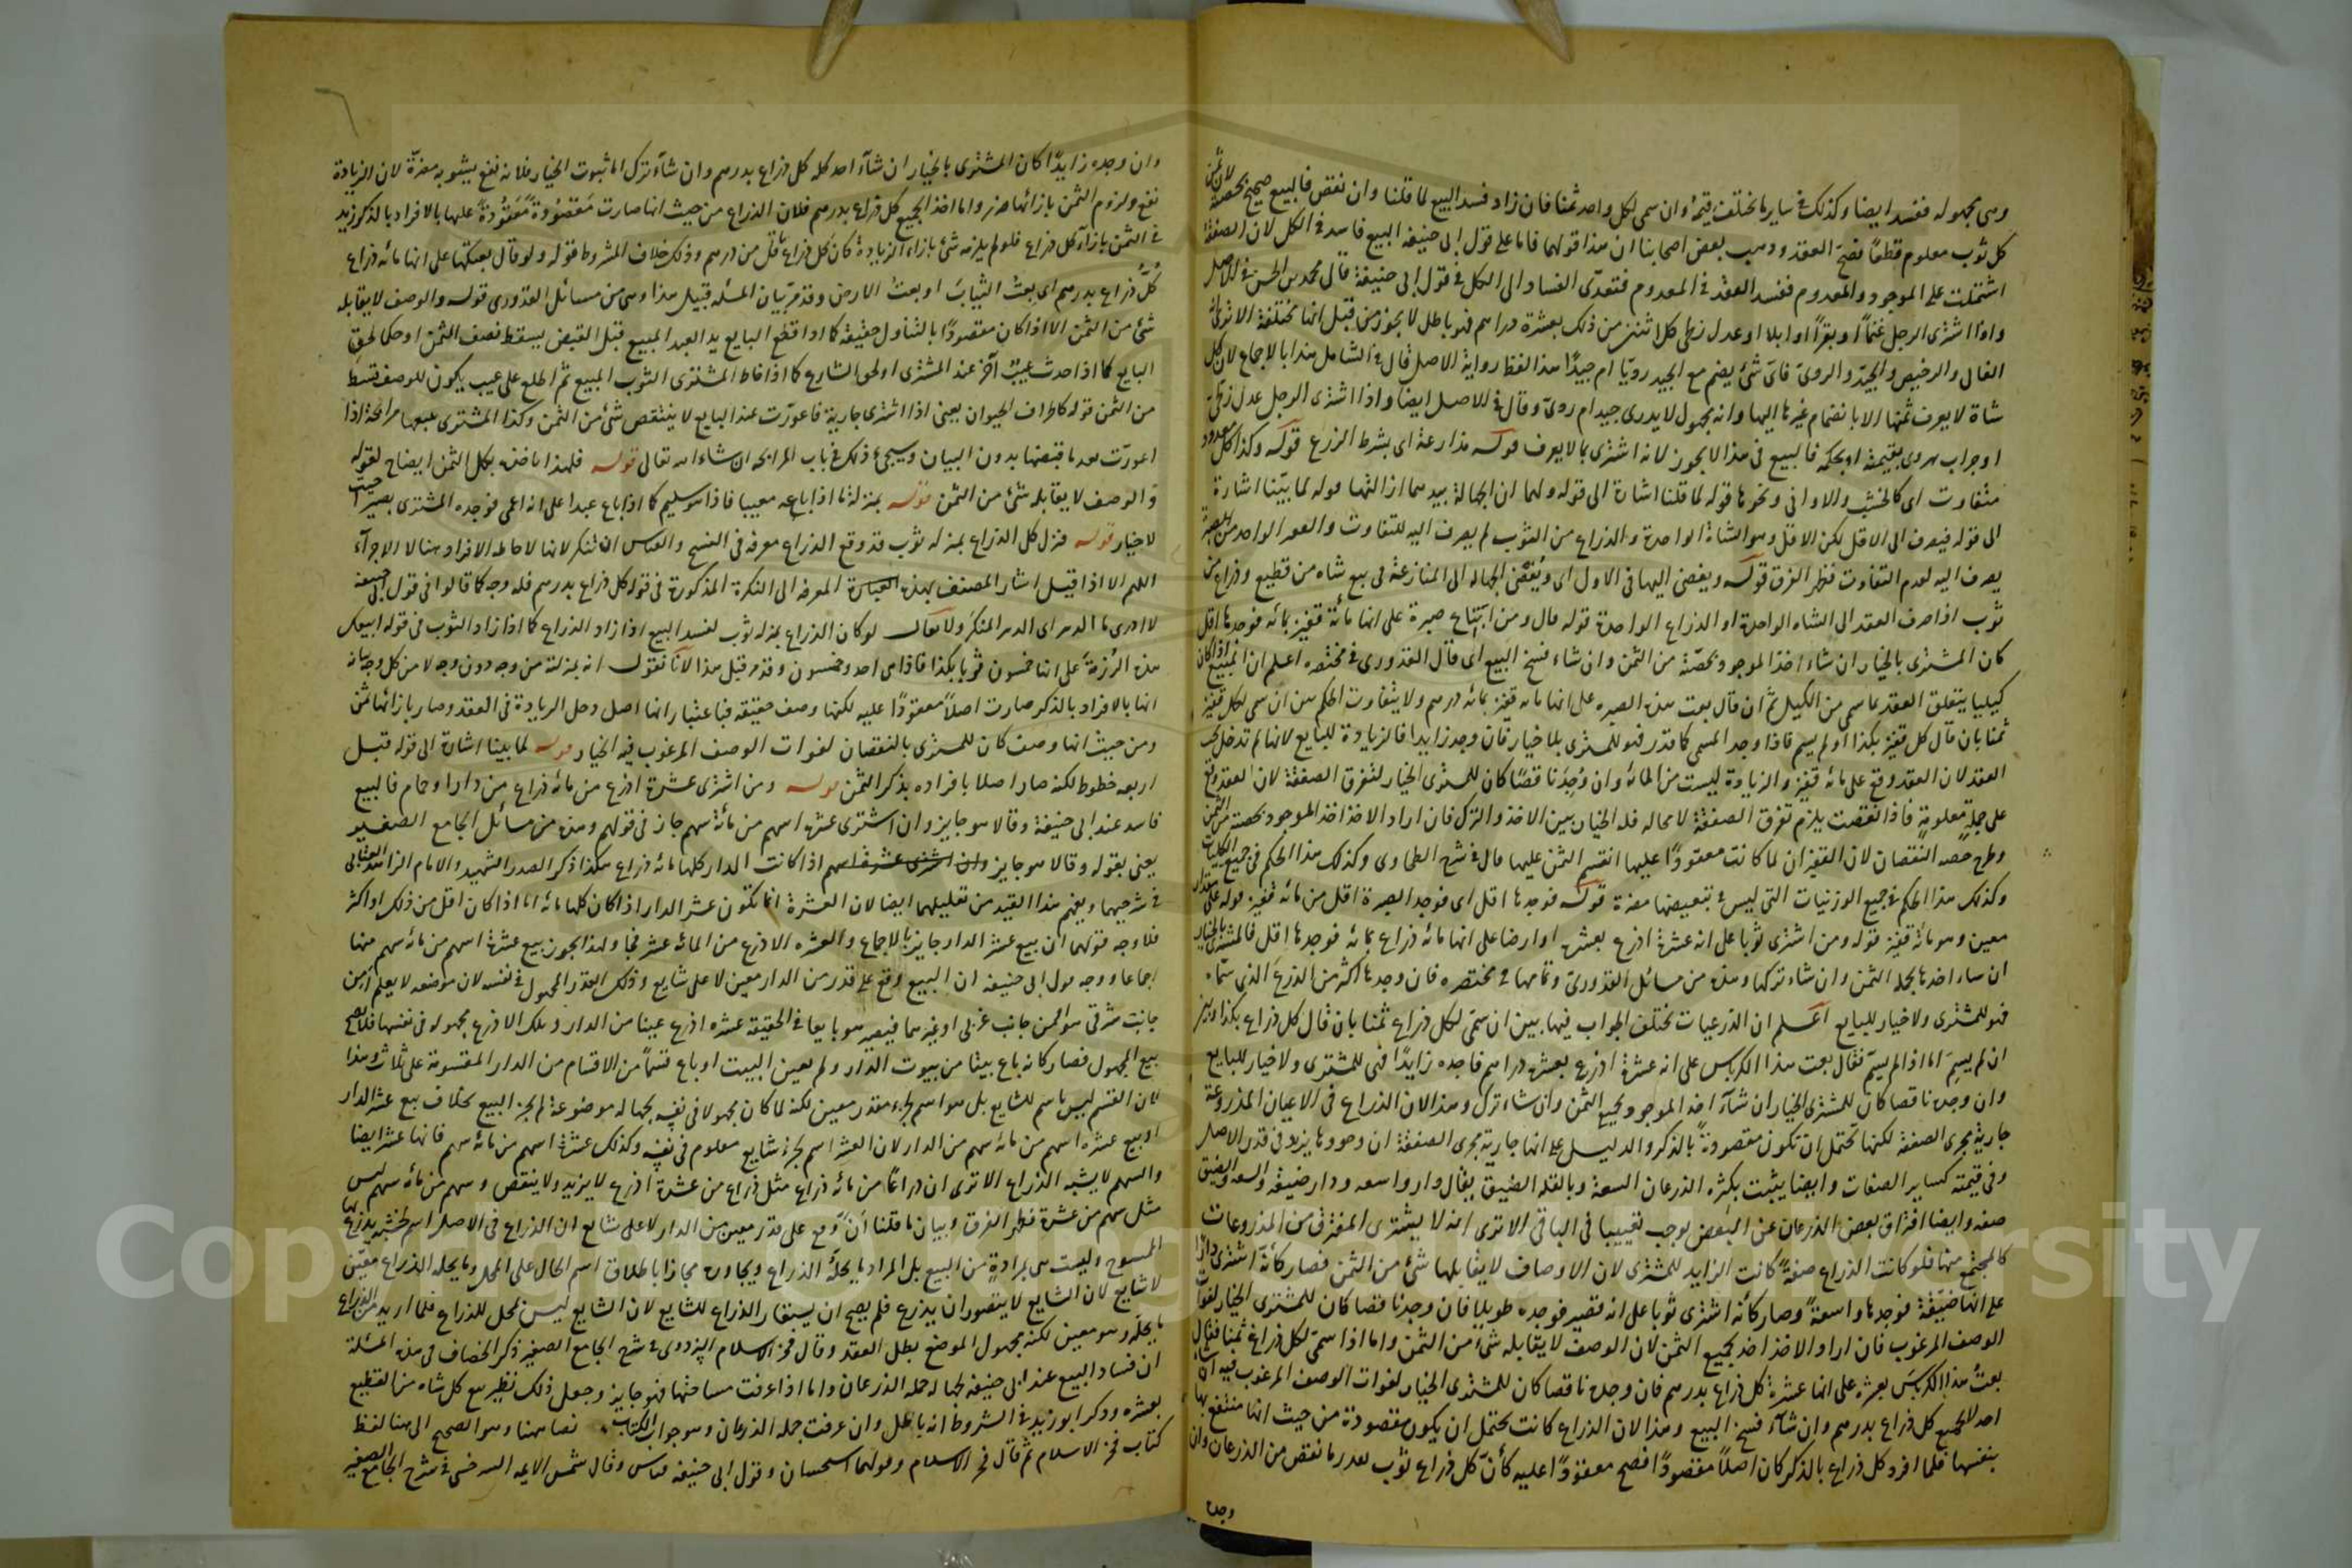 وهى مجهوله ففسد ايضا وكذلك فى ساير ما يختلف قيمة وان سمى لكل واحد ثمنا فان زاد فسد البيع لما قلنا وان نقص فالبيع صحيح بحصته لان ثمن
كل ثوب معلوم قطعًا فصح العقد وذهب بعض اصحابنا ان هذا قولهما فاما على قول ابى حنيفة البيع فاسد فى الكل لان الصفقة
اشتملت على الموجود والمعدوم ففسد العقد فى المعدوم فتعدى الفساد الى الكل فى قول ابى حنيفة قال محمد بن الحسن فى الاصل
واذا اشترى الرجل غنمًا او بقرًا او ابلا او عدل زطى كل اثنين من ذلك بعشرة دراهم فهو باطل لا يجوز من قبل انها مختلفة الا ترى ان
الغالى والرخيص والجيد والردى فاى شئ يضم مع الجيد رديا ام جيدًا هذا لفظ رواية الاصل قال فى الشامل هذا بالاجماع لان كل
شاة لا يعرف ثمنها الا بانضمام غيرها اليها وانه مجهول لا يدرى جيد ام ردى وقال فى الاصل ايضا واذا اشترى الرجل عدل زطى
او جراب هروى بقيمته او بحكمه فالبيع فى هذا لا يجوز لانه اشترى بما لا يعرف قوله مذارعة اى بشرط الزرع قوله وكذا كل معدود
متفاوت اى كالخشب والاوانى ونحوها قوله لما قلنا اشارة الى قوله ولهما ان الجهالة بيدهما ازالتها قوله لما بينا اشارة
الى قوله فيصرف الى الاقل لكن الاقل وهو الشاة الواحدة والذراع من الثوب لم يصرف اليه للتفاوت والقفيز الواحد من الصبرة
يصرف اليه لعدم التفاوت فظهر الفرق قوله ويفضى اليها فى الاول اى ويفضى الجهالة الى المنازعة فى بيع شاه من قطيع وذراع من
ثوب اذا صرف العقد الى الشاه الواحدة او الذراع الواحدة قوله قال ومن ابتاع صبرة على انها مائة قفيز بمائه فوجدها اقل
كان المشترى بالخيار ان شاء اخذ الموجود بحصته من الثمن وان شاء فسخ البيع اى قال القدورى فى مختصره اعلم ان المبيع اذا كان
كيليا يتعلق العقد بما سمى من الكيل ثم ان قال بعت هذه الصبره على انها مائه قفيز بمائه درهم ولا يتفاوت الحكم بين ان سمى لكل قفيز
ثمنا بان قال كل قفيز بكذا او لم يسم فاذا وجد المسمى كما قدر فهو للمشترى بلا خيار فان وجد زايدا فالزيادة للبايع لانها لم تدخل تحت
العقد لان العقد وقع على مائه قفيز والزيادة ليست من المائة وان وجدنا قصًا كان للمشترى الخيار لتفرق الصفقة لان العقد وقع
على جملة معلومة فاذا نقصت يلزم تفرق الصفقة لا محاله فله الخيار بين الاخذ والترك فان اراد الاخذ اخذ الموجود بحصته من الثمن
وطرح حصه النقصان لان القفزان لما كانت معقودًا عليها انقسم الثمن عليها قال فى شرح الطحاوى وكذلك هذا الحكم فى جميع الكيليات
وكذلك هذا الحكم فى جميع الوزنيات التى ليس فى تبعيضها مضرة قوله فوجدها اقل اى فوجد الصبرة اقل من مائه قفيز قوله على مقدار
معين وهو مائة قفيز قوله ومن اشترى ثوبا على انه عشرة اذرع بعشرة او ارضا على انها مائه ذراع بمائه فوجدها اقل فالمشترى بالخيار
ان شاء اخذها بجمله الثمن وان شاء تركها وهذه من مسائل القدورى وتمامها فى مختصره فان وجدها اكثر من الذرع الذى سماه
فهو للمشترى ولا خيار للبايع اعلم ان الذرعيات تختلف الجواب فيها بين ان سمى لكل ذراع ثمنا بان قال كل ذراع بكذا وبين
ان لم يسم اما اذا لم يسم فقال بعت هذا الكرباس على انه عشرة اذرع بعشرة دراهم فاجده زايدًا فهى للمشترى ولا خيار للبايع
وان وجده ناقصا كان للمشترى الخيار ان شاء اخذ الموجود بجميع الثمن وان شاء ترك وهذا لان الذراع فى الاعيان المذروعة
جارية مجرى الصفة لكنها تحتمل ان تكون مقصودة بالذكر والدليل على انها جارية مجرى الصفقة ان وجودها يزيد فى قدر الاصل
وفى قيمته كساير الصفات وايضا يثبت بكثرة الذرعان السعة وبالقله الضيق يقال دار واسعه ودار ضيقه والسعه والضيق
صفه وايضا افتراق بعض الذرعان عن البعض يوجب تعييبا فى الباقى الا ترى انه لا يشترى المفترق من المذروعات
كالمجتمع منها فلو كانت الذراع صفة كانت الزايد للمشترى لان الاوصاف لا يقابلها شئ من الثمن فصار كانه اشترى دارًا
على انها ضيقة فوجدها واسعة وصار كأنه اشترى ثوبا على انه قصير فوجده طويلا فان وجدنا قصا كان للمشترى الخيار لفوات
الوصف المرغوب فان اراد الاخذ اخذ بجميع الثمن لان الوصف لا يقابله شئ من الثمن واما اذا سمى لكل ذراع ثمنا فقال
بعت هذا الكرباس بعشرة على انها عشرة كل ذراع بدرهم فان وجده ناقصا كان للمشترى الخيار لفوات الوصف المرغوب فيه ان شاء
اخذ الجميع كل ذراع بدرهم وان شاء فسخ البيع وهذا لان الذراع كانت تحتمل ان يكون مقصودة من حيث انها منتفع بها
بنفسها فلما افرد كل ذراع بالذكر كان اصلًا مقصودًا فصح معقودًا عليه كأن كل ذراع ثوب بقدر ما نقص من الذرعان وان
وجده
وان وجده زايدًا كان المشترى بالخيار ان شاء اخذ كله كل ذراع بدرهم وان شاء ترك اما ثبوت الخيار فلانه نفع يشوبه مضرة لان الزيادة
نفع ولزوم الثمن بازائها ضرر واما اخذ الجميع كل ذراع بدرهم فلان الذراع من حيث انها صارت مقصودة معقودة عليها بالافراد بالذكر زيد
فى الثمن بازاء كل ذراع فلو لم يلزمه شئ بازاء الزيادة كان كل ذراع باقل من درهم وذلك خلاف المشروط قوله ولو قال بعتكها على انها مائه ذراع
كل ذراع بدرهم اى بعت الثياب او بعت الارض وقد مر بيان المسئله قبيل هذا وهى من مسائل القدورى قوله والوصف لا يقابله
شئ من الثمن الا اذا كان مقصودًا بالتناول حقيقة كما اذا قطع البايع يد العبد المبيع قبل القبض يسقط نصف الثمن او حكما لحق
البايع كما اذا حدث عيب آخر عند المشترى او لحق الشارع كما اذا خاط المشترى الثوب المبيع ثم اطلع على عيب يكون للوصف قسط
من الثمن قوله كاطراف الحيوان يعنى اذا اشترى جارية فاعورت عند البايع لا ينتقص شئ من الثمن وكذا المشترى يبيعها مرابحة اذا
اعورت بعد ما قبضها بدون البيان وسيجئ ذلك فى باب المرابحه ان شاء الله تعالى قوله فلهذا ياخذه بكل الثمن ايضاح لقوله
والوصف لا يقابله شئ من الثمن قوله بمنزلة ما اذا باعه معيبا فاذا هو سليم كما اذا باع عبدا على انه اعمى فوجده المشترى بصيرًا حيث
لا خيار قوله فنزل كل الذراع بمنزله ثوب قد وقع الذراع معرفه فى النسخ والقياس ان تنكر لانها لاحاطه الافراد هنا لا الاجزاء
اللهم الا اذا قيل اشار المصنف بهذه العبارة المعرفه الى النكرة المذكورة فى قوله كل ذراع بدرهم فله وجه كما قالوا فى قول ابى حنيفة
لا ادرى ما الدهر اى الدهر المنكر ولا يقال لو كان الذراع بمنزله ثوب لفسد البيع اذا زاد الذراع كما اذا زاد الثوب فى قوله ابيعك
هذه الرزمة على انها خمسون ثوبا بكذا فاذا هى احد وخمسون وقد مر قبل هذا لانا نقول انه بمنزلته من وجه دون وجه لا من كل وجه بيانه
انها بالافراد بالذكر صارت اصلًا معقودًا عليه لكنها وصف حقيقة فباعتبار انها اصل دخل الزيادة فى العقد وصار بازائها ثمن
ومن حيث انها وصف كان للمشترى بالنقصان لفوات الوصف المرغوب فيه الخيار قوله لما بينا اشارة الى قوله قبل
اربعه خطوط لكنه صار اصلا بافراده بذكر الثمن قوله ومن اشترى عشرة اذرع من مائة ذراع من دار او حمام فالبيع
فاسد عند ابى حنيفة وقالا هو جايز وان اشترى عشرة اسهم من مائة سهم جاز فى قولهم وهذه من مسائل الجامع الصغير
يعنى بقوله وقالا هو جايز وان اشترى عشرة اسهم اذا كانت الدار كلها مائه ذراع هكذا ذكر الصدر الشهيد والامام الزاهد العتابى
فى شرحيهما ويفهم هذا القيد من تعليلهما ايضا لان العشرة انما تكون عشر الدار اذا كان كلها مائه اما اذا كان اقل من ذلك او اكثر
فلا وجه قولهما ان بيع عشر الدار جايز بالاجماع والعشره الاذرع من المائه عشر فجاز ولهذا يجوز بيع عشرة اسهم من مائه سهم منها
اجماعا ووجه قول ابى حنيفة ان البيع وقع على قدر من الدار معين لا على شايع وذلك القدر المجهول فى نفسه لان موضعه لا يعلم امن
جانب شرقى هو ام من جانب غربى او غيرهما فيصير هو بايعا فى الحقيقة عشره اذرع عينا من الدار وتلك الاذرع مجهوله فى نفسها فلا يصح
بيع المجهول فصار كانه باع بيتا من بيوت الدار ولم يعين البيت او باع قسمًا من الاقسام من الدار المقسومة على ثلاث وهذا
لان القسم ليس باسم للشايع بل هو اسم لجزء مقدر معين لكنه لما كان مجهولا فى نفسه لجهاله موضوعه لم يجز البيع بخلاف بيع عشر الدار
او بيع عشره اسهم من مائه سهم من الدار لان العشر اسم لجزء شايع معلوم فى نفسه وكذلك عشرة اسهم من مائه سهم فانها عشر ايضا
والسهم لا يشبه الذراع الا ترى ان ذراعًا من مائه ذراع مثل ذراع من عشرة اذرع لا يزيد ولا ينقص وسهم من مائه سهم ليس
مثل سهم من عشرة فظهر الفرق وبيان ما قلنا انه وقع على قدر معين من الدار لا على شايع ان الذراع فى الاصل اسم لخشبه يذرع بها
الممسوح وليست هى بمرادة من البيع بل المراد ما يحله الذراع ويجاوره مجازا باطلاق اسم الحال على المحل وما يحله الذراع معين
لا شايع لان الشايع لا يتصور ان يذرع فلم يصح ان يستعار الذراع للشايع لان الشايع ليس بمحل للذراع فلما اريد من الذراع
ما يحله وهو معين لكنه مجهول الموضع بطل العقد وقال فخر الاسلام البزدوى فى شرح الجامع الصغير ذكر الخصاف فى هذه المسئلة
ان فساد البيع عند ابى حنيفة لجهاله جمله الذرعان واما اذا عرفت مساحتها فهو جايز وجعلى ذلك نظير بيع كل شاه من القطيع
بعشره وذكر ابو زيد فى الشروط انه باطل وان عرفت جمله الذرعان وهو جواب الكتاب نصا ههنا وهو الصحيح الى هنا لفظ
كتاب فخر الاسلام ثم قال فخر الاسلام وقولهما استحسان وقول ابى حنيفة قياس وقال شمس الايمه السرخسى فى شرح الجامع الصغير
Copyright © King Saud University